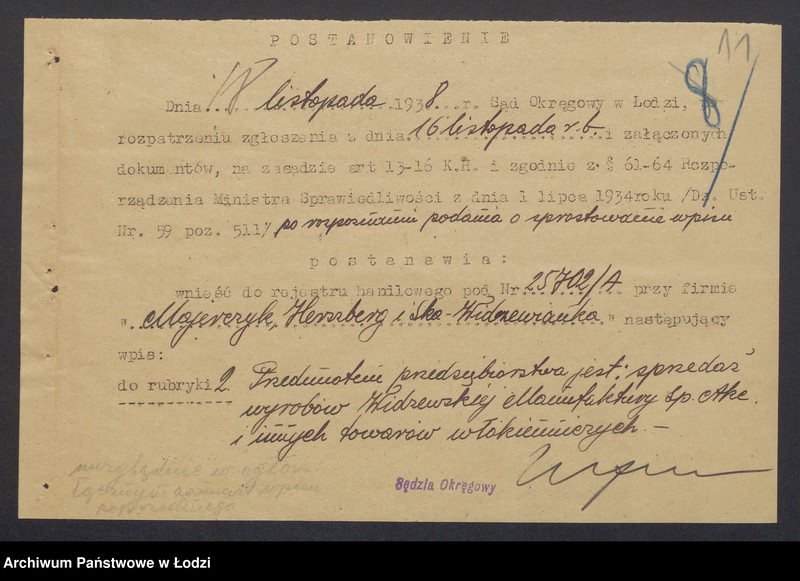 11
8
POSTANOWIENIE
Dnia 18 listopada 1938 r. Sąd Okręgowy w Łodzi, po
rozpatrzeniu zgłoszenia z dnia 16 listopada r.b. i załączonych
dokumentów, na zasadzie art 13-16 K.H. i zgodnie z § 61-64 Rozpo-
rządzenia Ministra Sprawiedliwości z dnia 1 lipca 1934roku /Dz. Ust.
Nr. 59 poz. 511/ po rozpoznaniu podania o sprostowanie wpisu
postanawia:
wnieść do rejestru handlowego pod Nr. 25702/A przy firmie
"Majerczyk, Herszberg i Ska - Widzewianka" następujący
wpis:
do rubryki 2 Przedmiotem przedsiębiorstwa jest: sprzedaż
wyrobów Widzewskiej Manufaktury Sp. Akc.
i innych towarów włókienniczych. —
wpisu
poprzedniego
Sędzia Okręgowy
Archiwum Państwowe w Łodzi